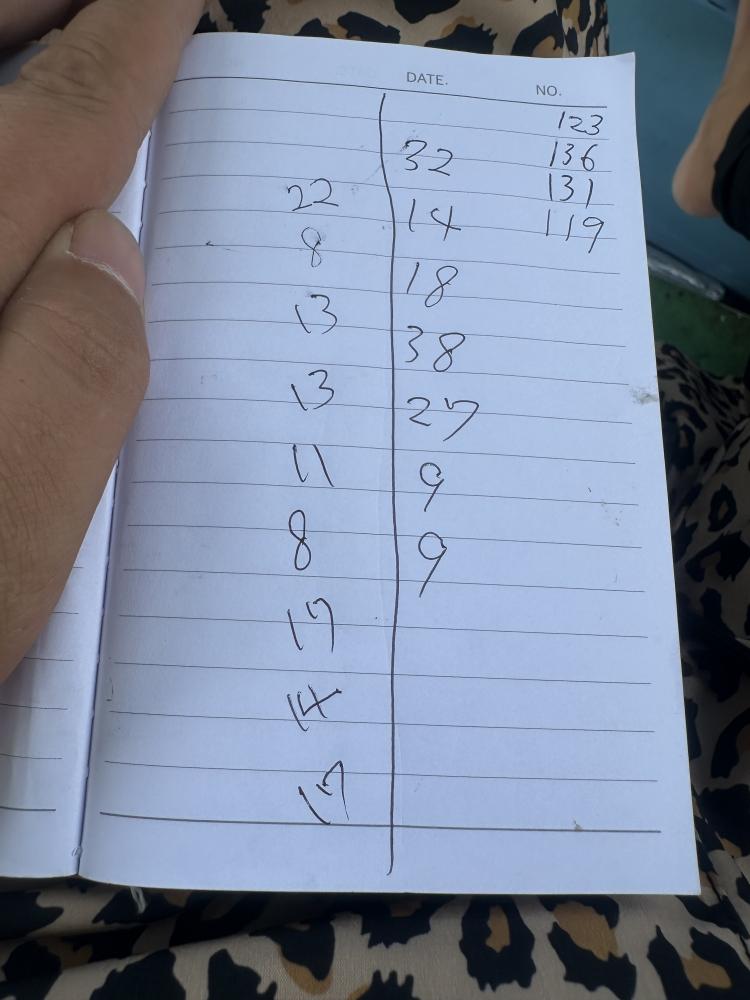 DATE. NO.
123
32 136
22 131
14 119
8
18
13
38
13
27
11
9
8
9
17
14
17